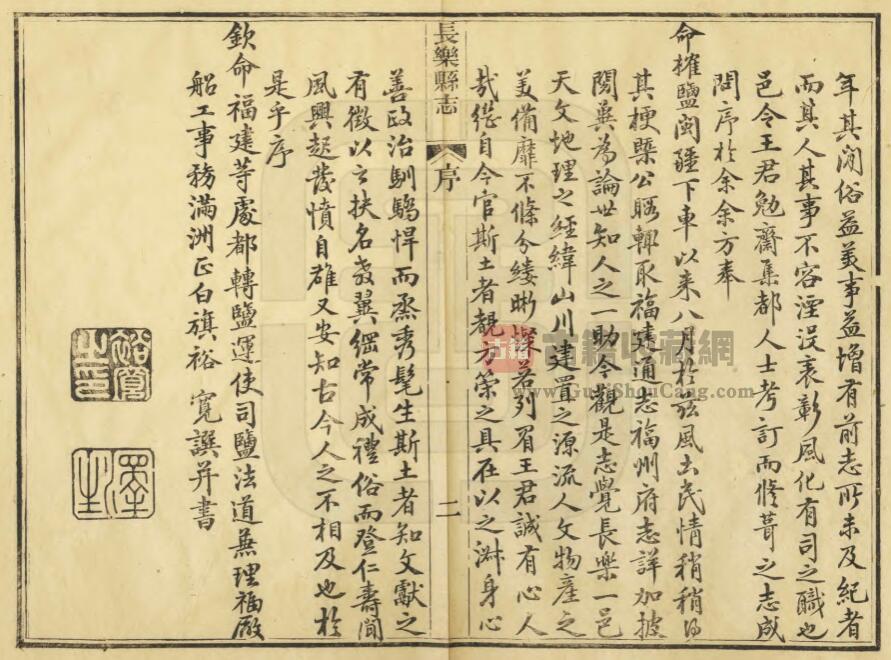 年其间俗益美事益增有前志所未及紀者
而其人其事不容湮没表彰風化有司之職也
邑令王君勉齋集都人士考訂而修葺之志成
問序於余余方奉
命榷鹽閩疆下車以来八月於茲風土民情稍稍得
其梗槩公暇輒取福建通志福州府志詳加披
閱兼為論世知人之一助今觀是志覺長樂一邑
天文地理之經緯山川建置之源流人文物產之
美備靡不條分縷晰燦若列眉王君誠有心人
哉繼自今官斯土者觀方策之具在以之淋身心
善政治馴驕悍而烝秀髦生斯土者知文獻之
有徵以之扶名教翼綱常成禮俗而登仁壽聞
風興起發憤自雄又安知古今人之不相及也於
是乎序
欽命福建等處都轉鹽運使司鹽法道兼理福厰
船工事務滿洲正白旗裕寛譔并書
長樂縣志
序
二
裕寛之印
古籍
古籍收藏網
www.GuJiShouCang.com